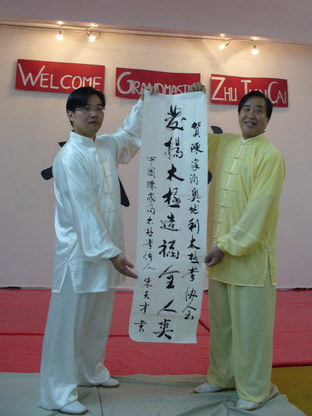 WELCOME
GRANDMASTER
ZHU TIAN CAI
賀陳家沟奥地利太极拳协会
發揚太極造福全人类
中國陳家沟太极拳传人朱天才書